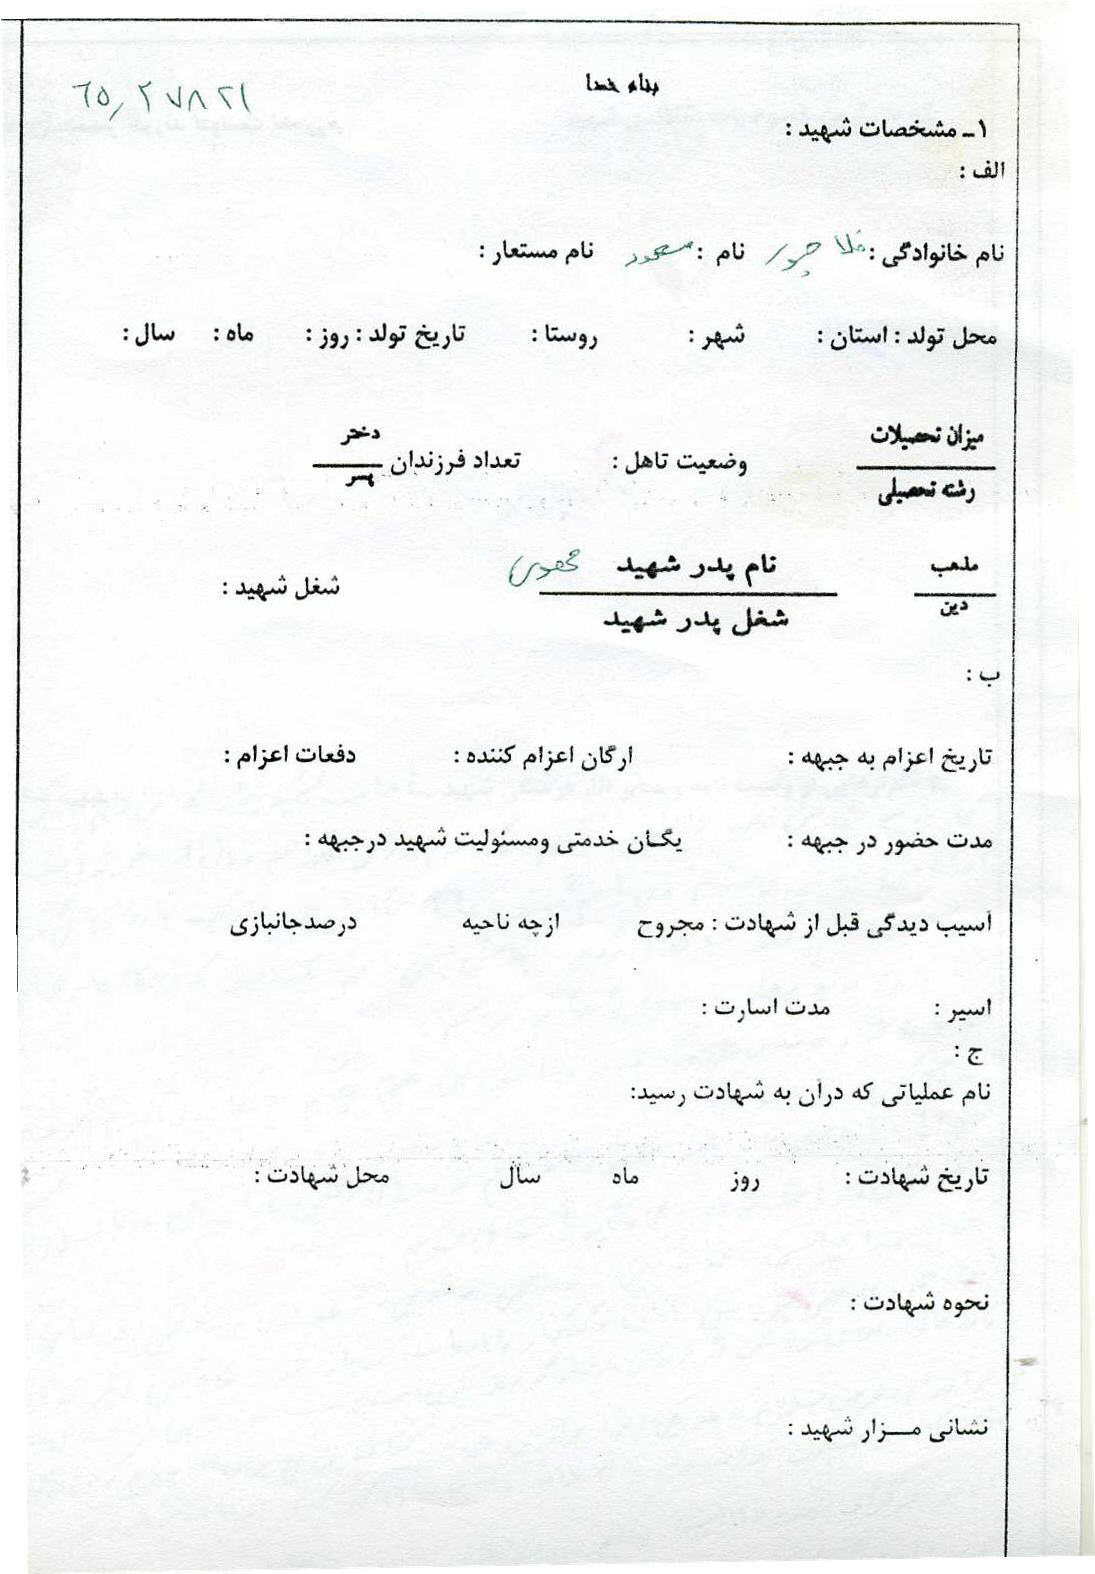 بنام خدا
٦٥٫٢٧٨٢١
۱ـ مشخصات شهید :
الف :
نام خانوادگی : فلاح پور نام : مسعود نام مستعار :
محل تولد : استان : شهر : روستا : تاریخ تولد : روز : ماه : سال :
میزان تحصیلات وضعیت تاهل : تعداد فرزندان دختر
رشته تحصیلی پسر
مذهب نام پدر شهید شغل شهید :
دین شغل پدر شهید
ب :
تاریخ اعزام به جبهه : ارگان اعزام کننده : دفعات اعزام :
مدت حضور در جبهه : یگان خدمتی ومسئولیت شهید درجبهه :
آسیب دیدگی قبل از شهادت : مجروح ازچه ناحیه درصدجانبازی
اسیر : مدت اسارت :
ج :
نام عملیاتی که درآن به شهادت رسید:
تاریخ شهادت : روز ماه سال محل شهادت :
نحوه شهادت :
نشانی مـــزار شهید :